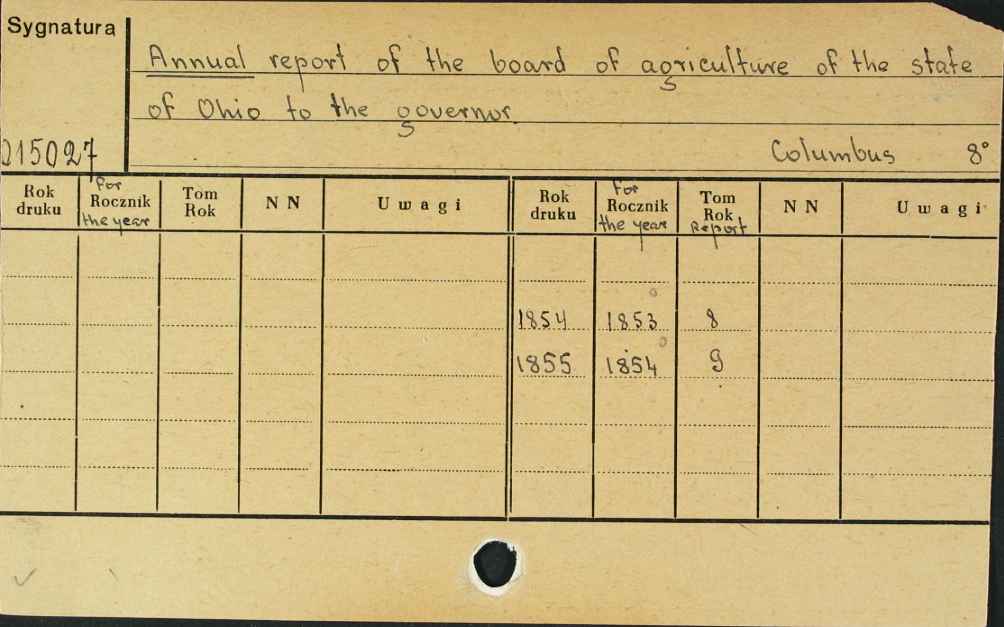 Sygnatura
Annual report of the board of agriculture of the state
of Ohio to the governor.
015027
Columbus 8°
Rok druku For Rocznik the year Tom Rok NN Uwagi Rok druku For Rocznik the year Tom Rok Report NN Uwagi
1854 1853 8
1855 1854 9